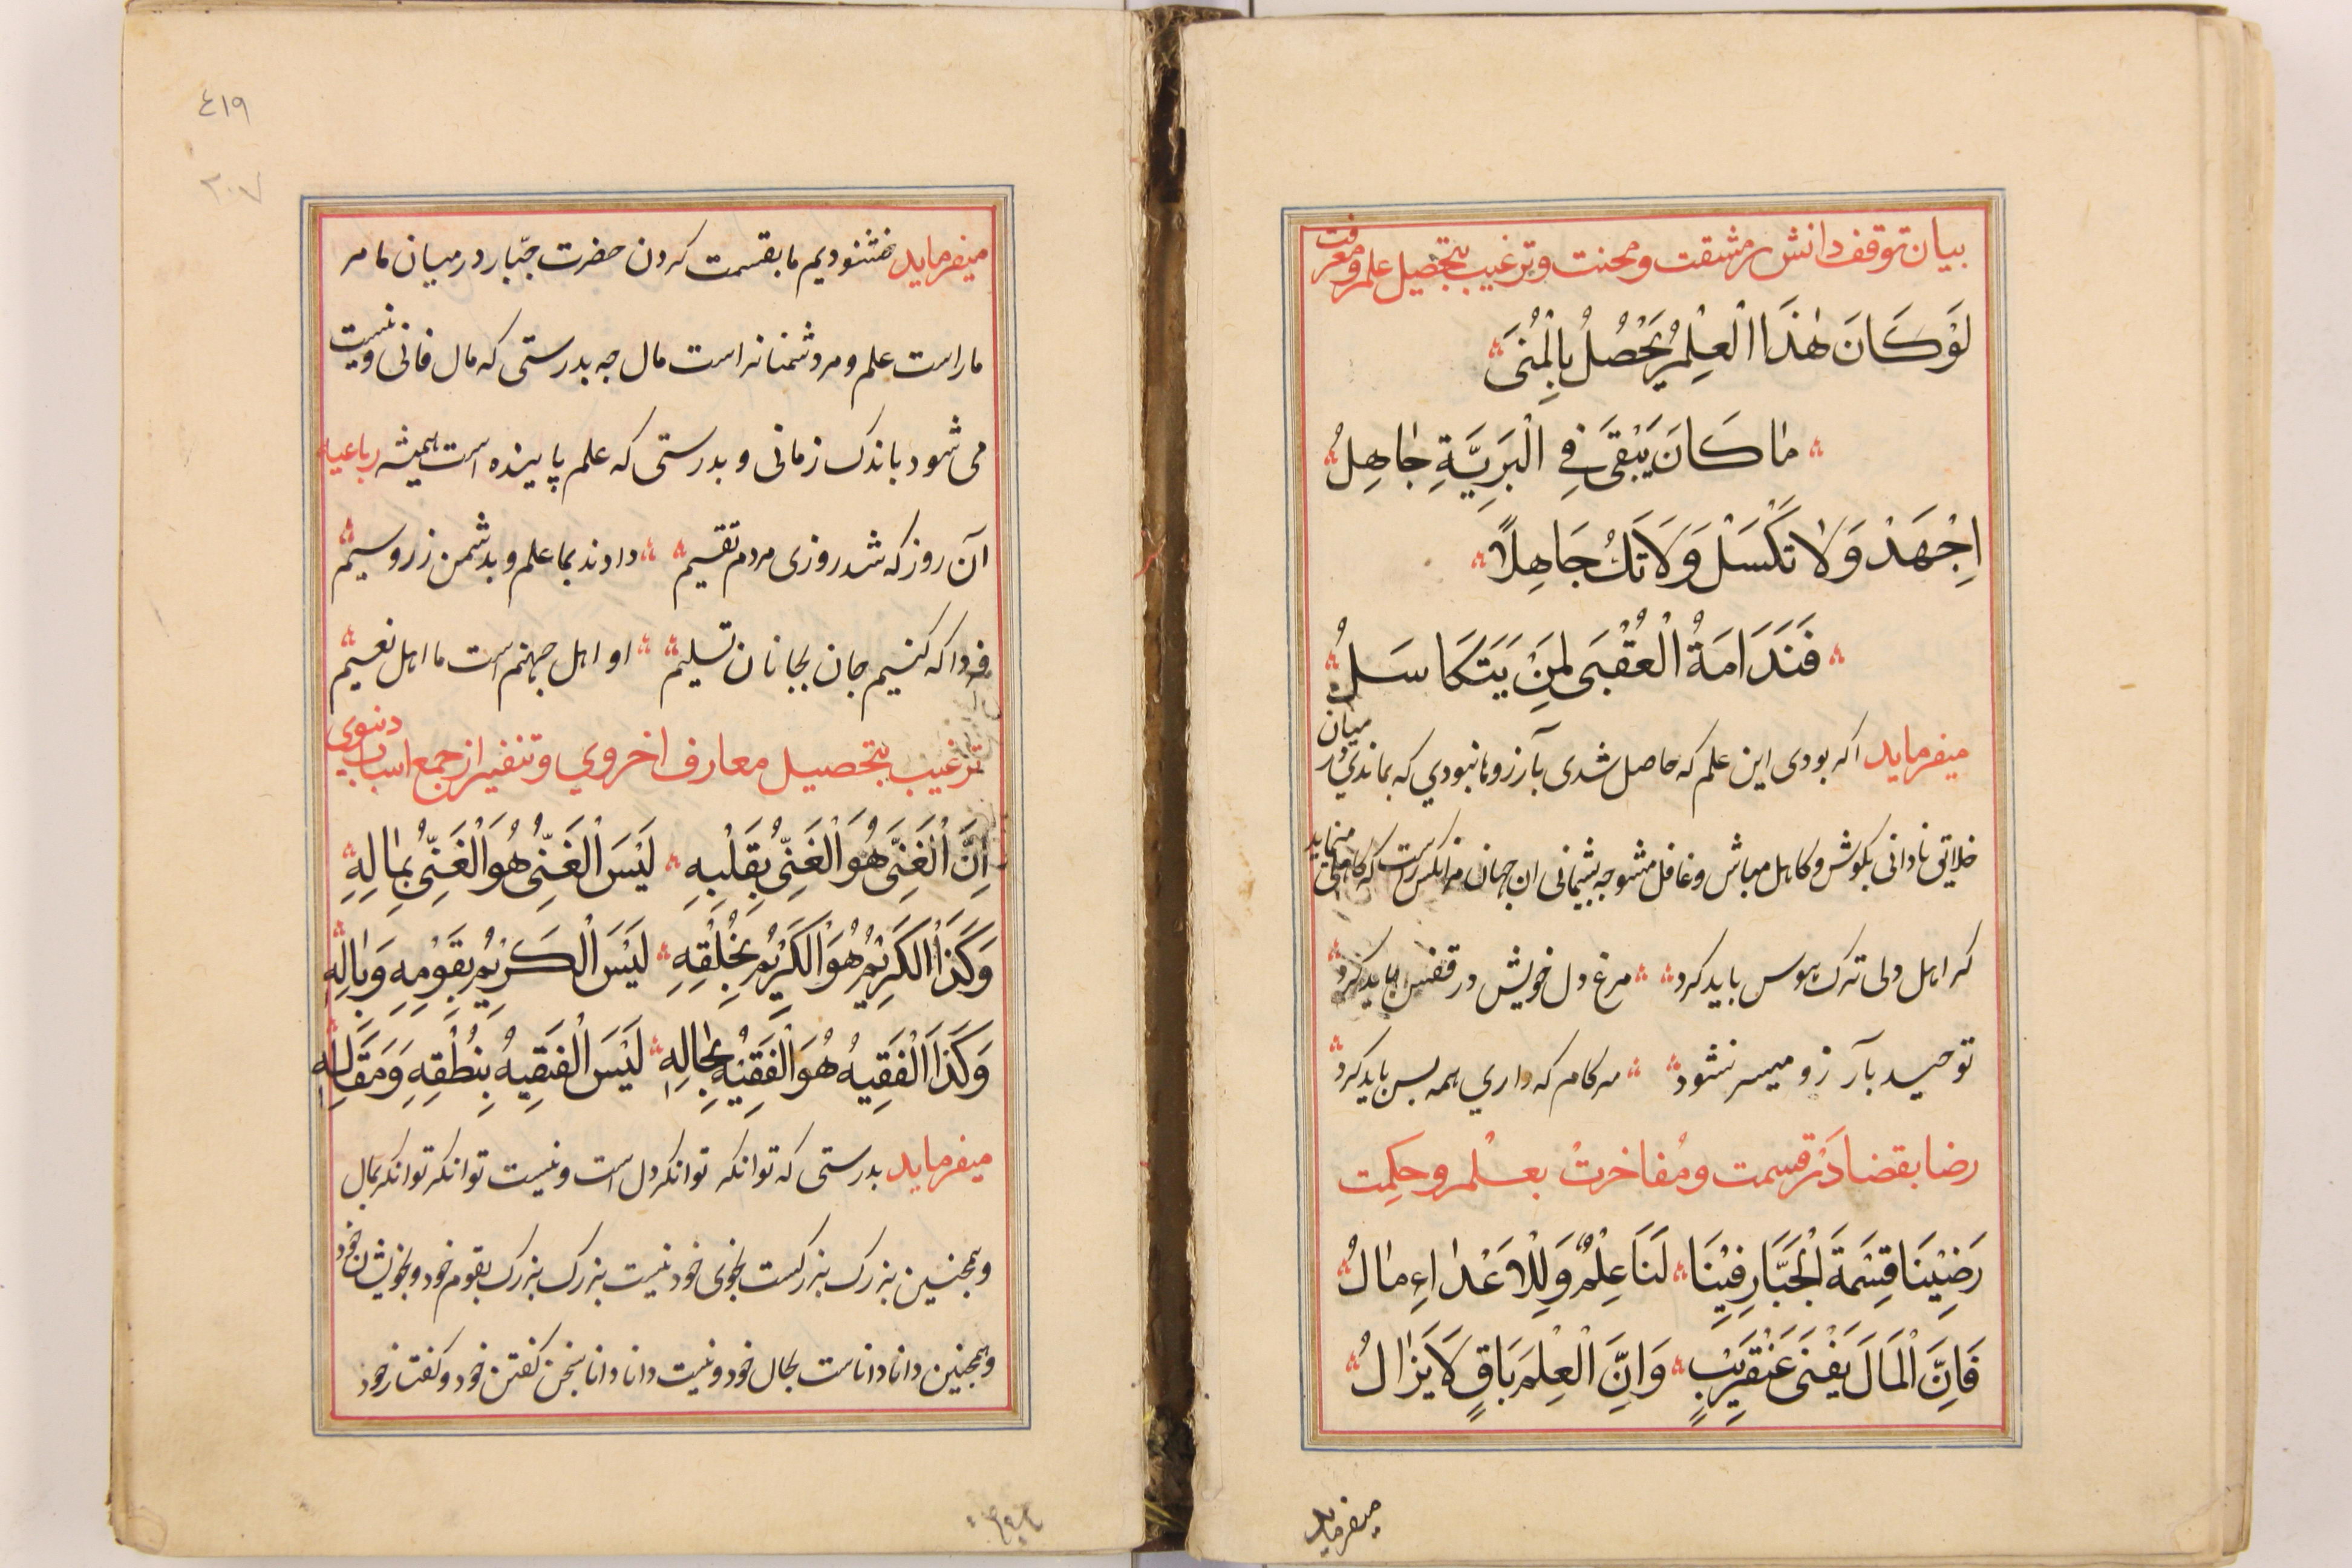 بیان توقف دانش بر مشقت و محنت و ترغیب بتحصیل علم و معرفت
لَوْ كَانَ هٰذَا الْعِلْمُ يَحْصُلُ بِالْمُنَىٰ
مٰا كَانَ يَبْقَىٰ فِي الْبَرِيَّةِ جٰاهِلُ
اِجْهَدْ وَلٰا تَكْسَلْ وَلَا تَكُ جَاهِلًا
فَنَدَامَةُ الْعُقْبَىٰ لِمَنْ يَتَكَاسَلُ
میفرماید اکر بودی این علم که حاصل شدی بآرزوها نبودی که بماندی در میان
خلایق نادانی بکوش و کاهل مباش و غافل مشو چه پشیمانی ان جهان مر انکس راست که کاهلی مینماید
کر اهل دلی ترک هوس باید کرد مرغ دل خویش در قفس باید کرد
توحید بآرزو میسر نشود هر کام که داری همه بس باید کرد
رضا بقضا در قسمت و مفاخرت بعلم و حکمت
رَضِيْنَا قِسْمَةَ الْجَبَّارِ فِيْنَا لَنَا عِلْمٌ وَلِلْاَعْدٰاءِ مٰالُ
فَاِنَّ الْمَالَ يَفْنَىٰ عَنْقَرِيْبٍ وَاِنَّ الْعِلْمَ بَاقٍ لَا يَزٰالُ
میفرماید
٤١٩
٢٠٧
میفرماید خشنودیم ما بقسمت کردن حضرت جبّار در میان ما مر
ما راست علم و مر دشمنانراست مال چه بدرستی که مال فانی و نیست
می شود باندک زمانی و بدرستی که علم پاینده است همیشه رباعیه
آن روز که شد روزی مردم تقسیم دادند بما علم و بدشمن زر و سیم
فردا که کنیم جان بجانان تسلیم او اهل جهنم است ما اهل نعیم
ترغیب بتحصیل معارف اخروي و تنفیر از جمع اسباب دنیوی
اِنَّ الْغَنِيَّ هُوَ الْغَنِيُّ بِقَلْبِهِ لَيْسَ الْغَنِيُّ هُوَ الْغَنِيُّ بِمٰالِهِ
وَكَذَا الْكَرِيْمُ هُوَ الْكَرِيْمُ بِخُلْقِهِ لَيْسَ الْكَرِيْمُ بِقَوْمِهِ وَبِاٰلِهِ
وَكَذَا الْفَقِيهُ هُوَ الْفَقِيْهُ بِحٰالِهِ لَيْسَ الْفَقِيهُ بِنُطْقِهِ وَمَقَالِهِ
میفرماید بدرستی که توانکر توانکر دل است و نیست توانکر توانکر بمال
و همچنین بزرک بزرکست بخوی خود نیست بزرک بزرک بقوم خود و بخویشان خود
و همچنین دانا داناست بحال خود و نیست دانا دانا بسخن کفتن خود و کفتار خود